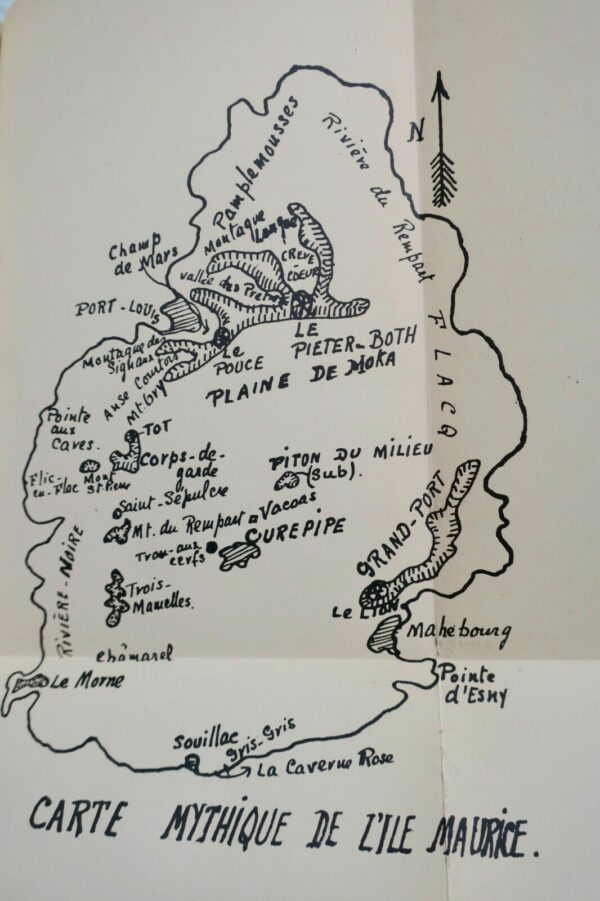 N
Pamplemousses
Rivière du Rempart
Montagne Longue
Champ
de Mars
CRÈVE
COEUR
Vallée des Pretres
PORT-LOUIS
LE
PIETER-BOTH
FLACQ
Montagne des
Signaux
Le
POUCE
Anse Courtois
Mt. Ory
PLAINE DE MOKA
Pointe
aux
Caves.
TOT
Corps-de-
garde
PITON DU MILIEU
(Sub).
Flic-
en-Flac
Mont
St. Pierre
Saint-Sépulcre
Mt. du Rempart
Vacoas
CUREPIPE
Trou-aux
cerfs
GRAND-PORT
RIVIÈRE-NOIRE
Trois-
Mamelles.
Le Lion
Mahébourg
Châmarel
Le Morne
Pointe
d'Esny
Souillac
Gris-Gris
La Caverne Rose
CARTE MYTHIQUE DE L'ILE MAURICE.